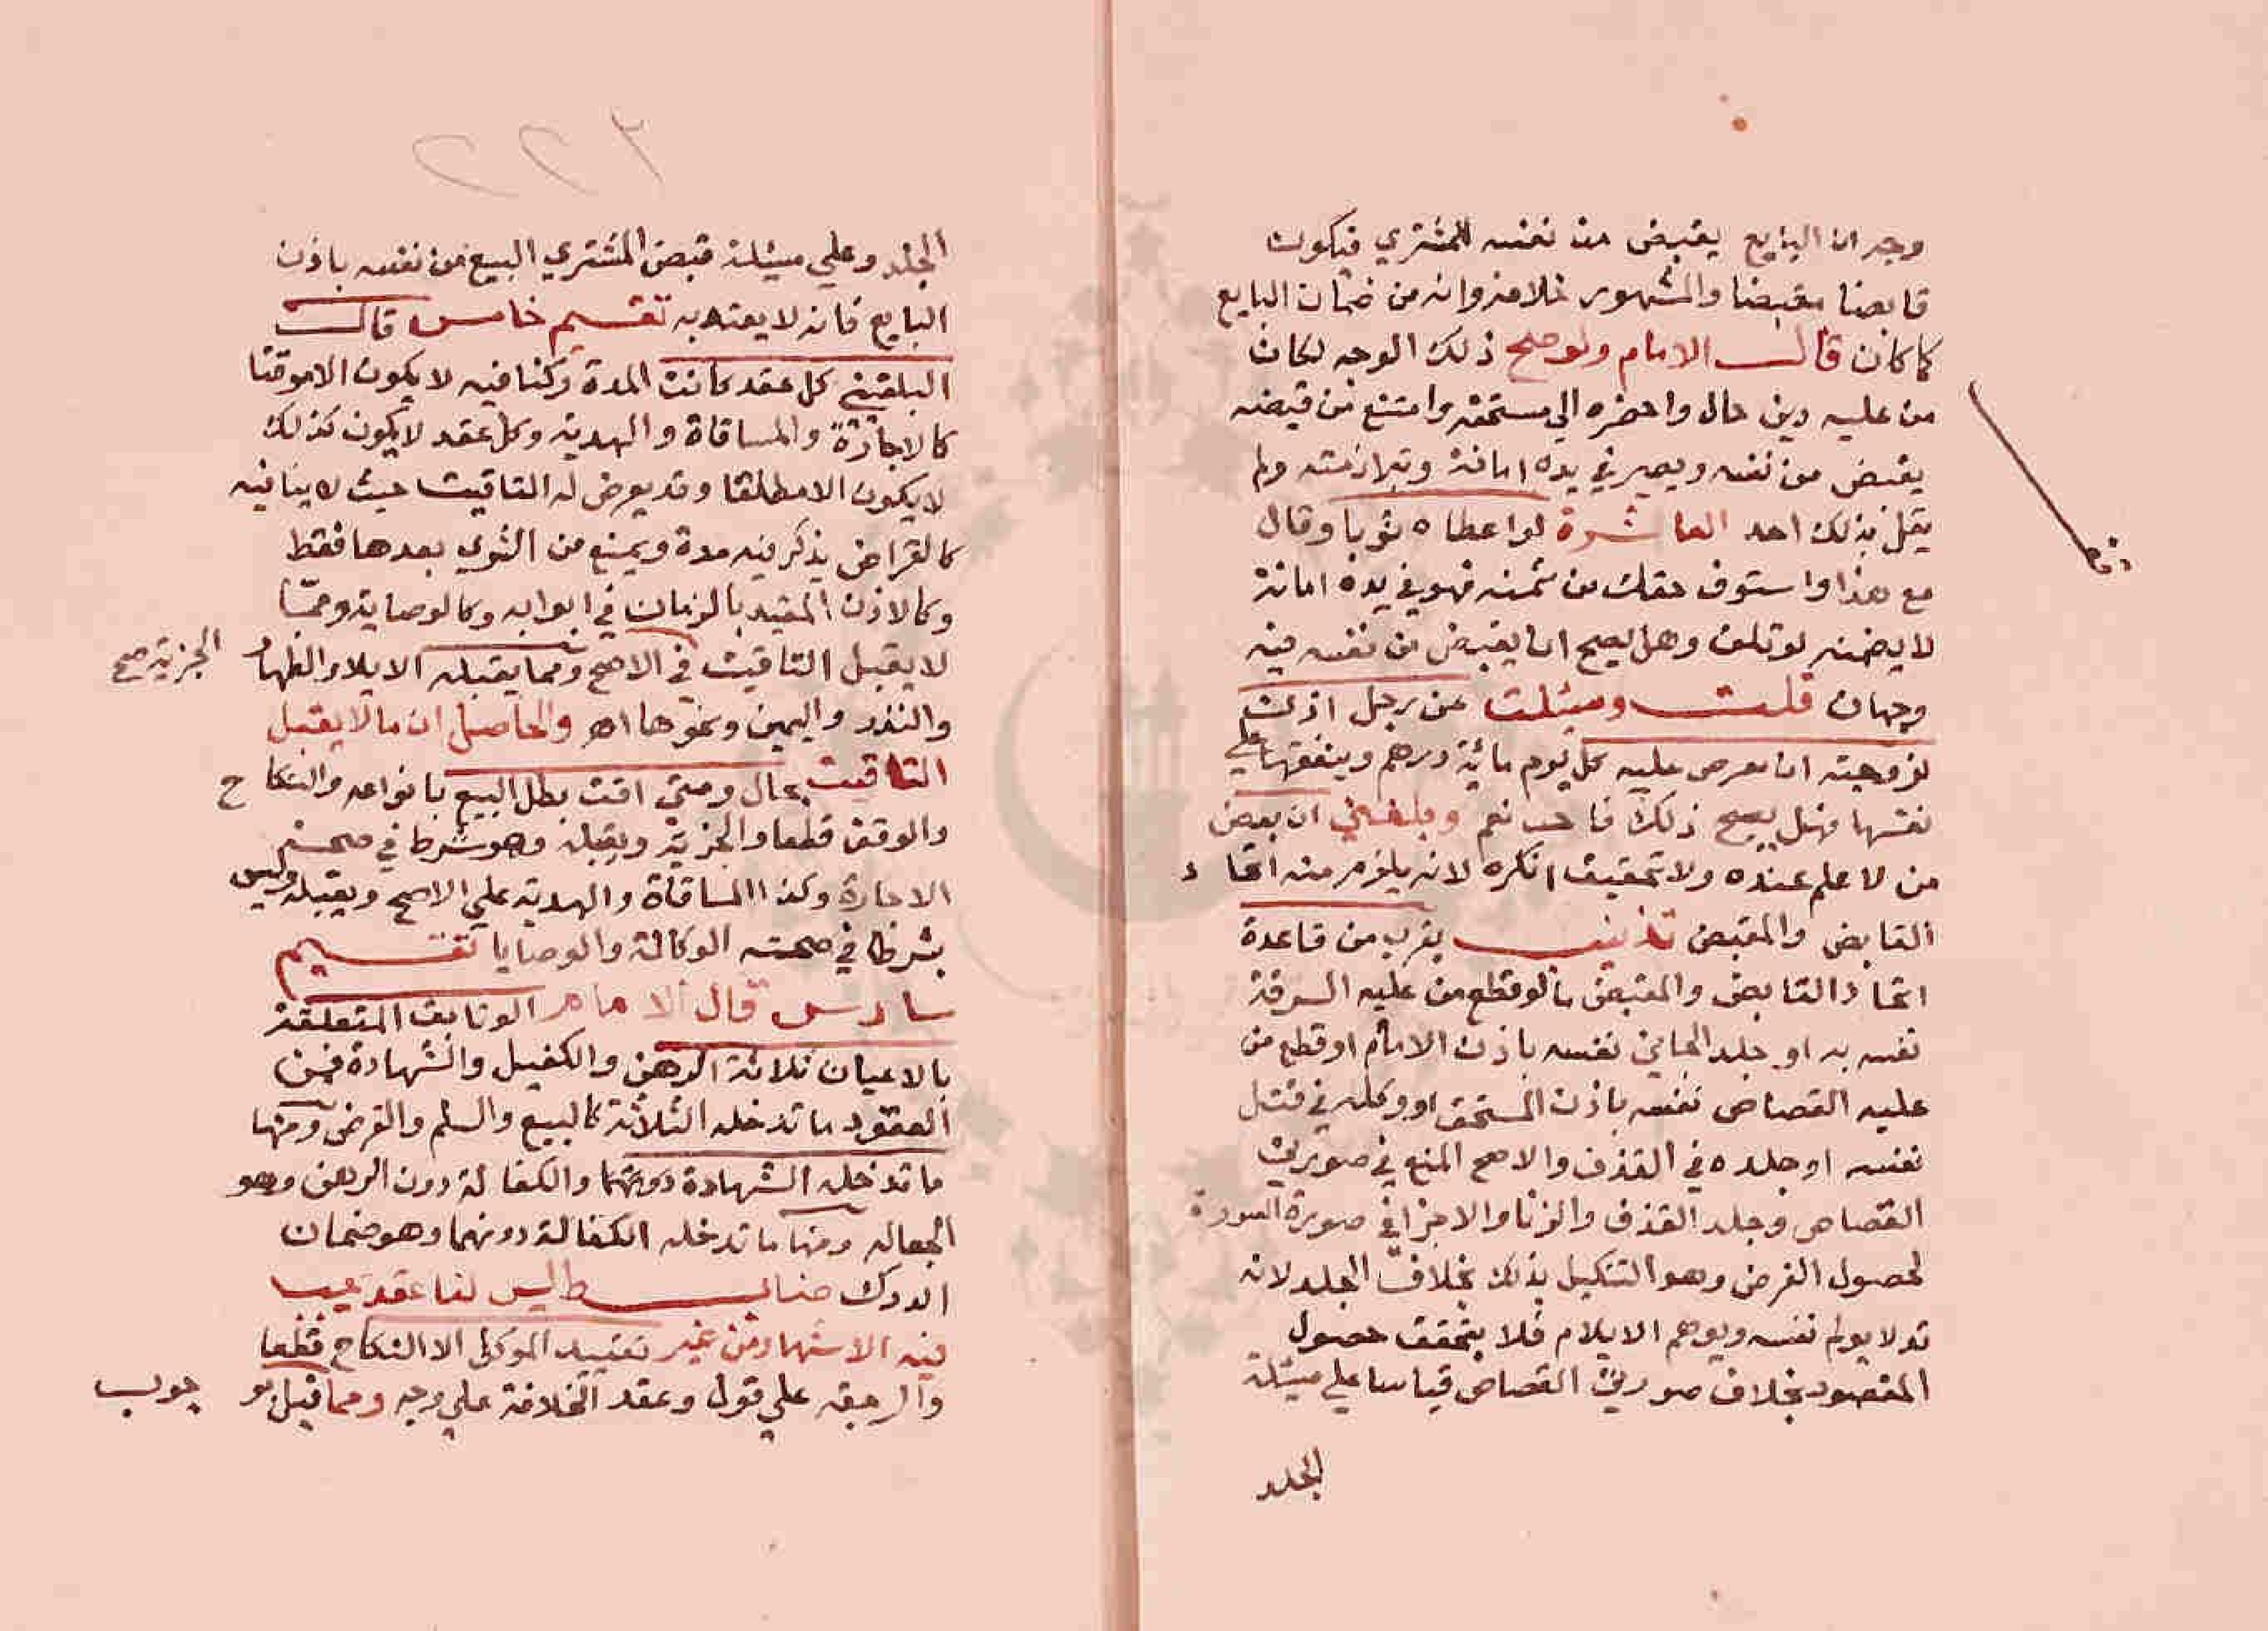 وجه ان البايع يقبض من نفسه للمشتري فيكون
قابضا مقبضا والمشهور خلافه وانه من ضمان البايع
كما كان قال الامام ولو صح ذلك الوجه لكان
من عليه دين حال واحضره الي مستحقه وامتنع من قبضه
يقبض من نفسه ويصير في يده امانة وتبرا ذمته ولم
يقل بذلك احد العاشرة لو اعطاه ثوبا وقال
بع هذا واستوف حقك من ثمنه فهو في يده امانة
لا يضمنه لو تلف وهل يصح ان يقبض من نفسه فيه
وجهان قلت وسئلت عن رجل اذن
لزوجته ان تقرض عليه كل يوم مائة درهم وينفقها علي
نفسها فهل يصح ذلك فاجبت نعم وبلغني ان بعض
من لا علم عنده ولا تحقيق انكره لانه يلزم منه اتحاد
القابض والمقبض تذنيب يقرب من قاعدة
اتحاد القابض والمقبض ما لو قطع من عليه السرقة
نفسه به او جلد الجاني نفسه باذن الامام او قطع من
عليه القصاص نفسه باذن المستحق او وكله في قتل
نفسه او جلده في القذف والاصح المنع في صورتي
القصاص وجلد القذف والزنا والاجزا في صورة السرقة
لحصول الغرض وهو التنكيل بذلك بخلاف الجلد لانه
قد لا يولم نفسه ويوهم الايلام فلا يتحقق حصول
المقصود بخلاف صورتي القصاص قياسا علي مسئلة
الجلد
٢٢٢
الجلد وعلي مسئلة قبض المشتري البيع من نفسه باذن
البايع فانه لا يعتد به تقسيم خامس قال
البلقيني كل عقد كانت المدة ركنا فيه لا يكون الا موقتا
كالاجازة والمساقاة والهدنة وكل عقد لا يكون كذلك
لا يكون الا مطلقا وقد يعرض له التاقيت حيث لا ينافيه
كالقراض يذكر فيه مدة ويمنع من الشري بعدها فقط
وكالاذن المقيد بالزمان في ابوابه وكالوصاية ومما
لا يقبل التاقيت في الاصح ومما يقبله الايلا والظهار
الجزية صح
والنذر واليمين ونحوها اهـ والحاصل ان ما لا يقبل
التاقيت بحال ومتي اقت بطل البيع بانواعه والنكاح
والوقف قطعا والجزية ويقبله وهو شرط في صحته
الاجارة وكذا المساقاة والهدنة علي الاصح ويقبله وليس
بشرط في صحته الوكالة والوصايا تقسيم
سادس قال الامام الوثايق المتعلقة
بالاعيان ثلاثة الرهن والكفيل والشهادة فمن
العقود ما تدخله الثلاثة كالبيع والسلم والقرض ومنها
ما تدخله الشهادة دونهما والكفالة دون الرهن وهو
الجعاله ومنها ما تدخله الكفالة دونهما وهو ضمان
الدرك ضابط ليس لنا عقد يجب
فيه الاشهاد من غير تقييد الموكل الا النكاح قطعا
والرجعة علي قول وعقد الخلافة علي وجه ومما قيل بو
جوب